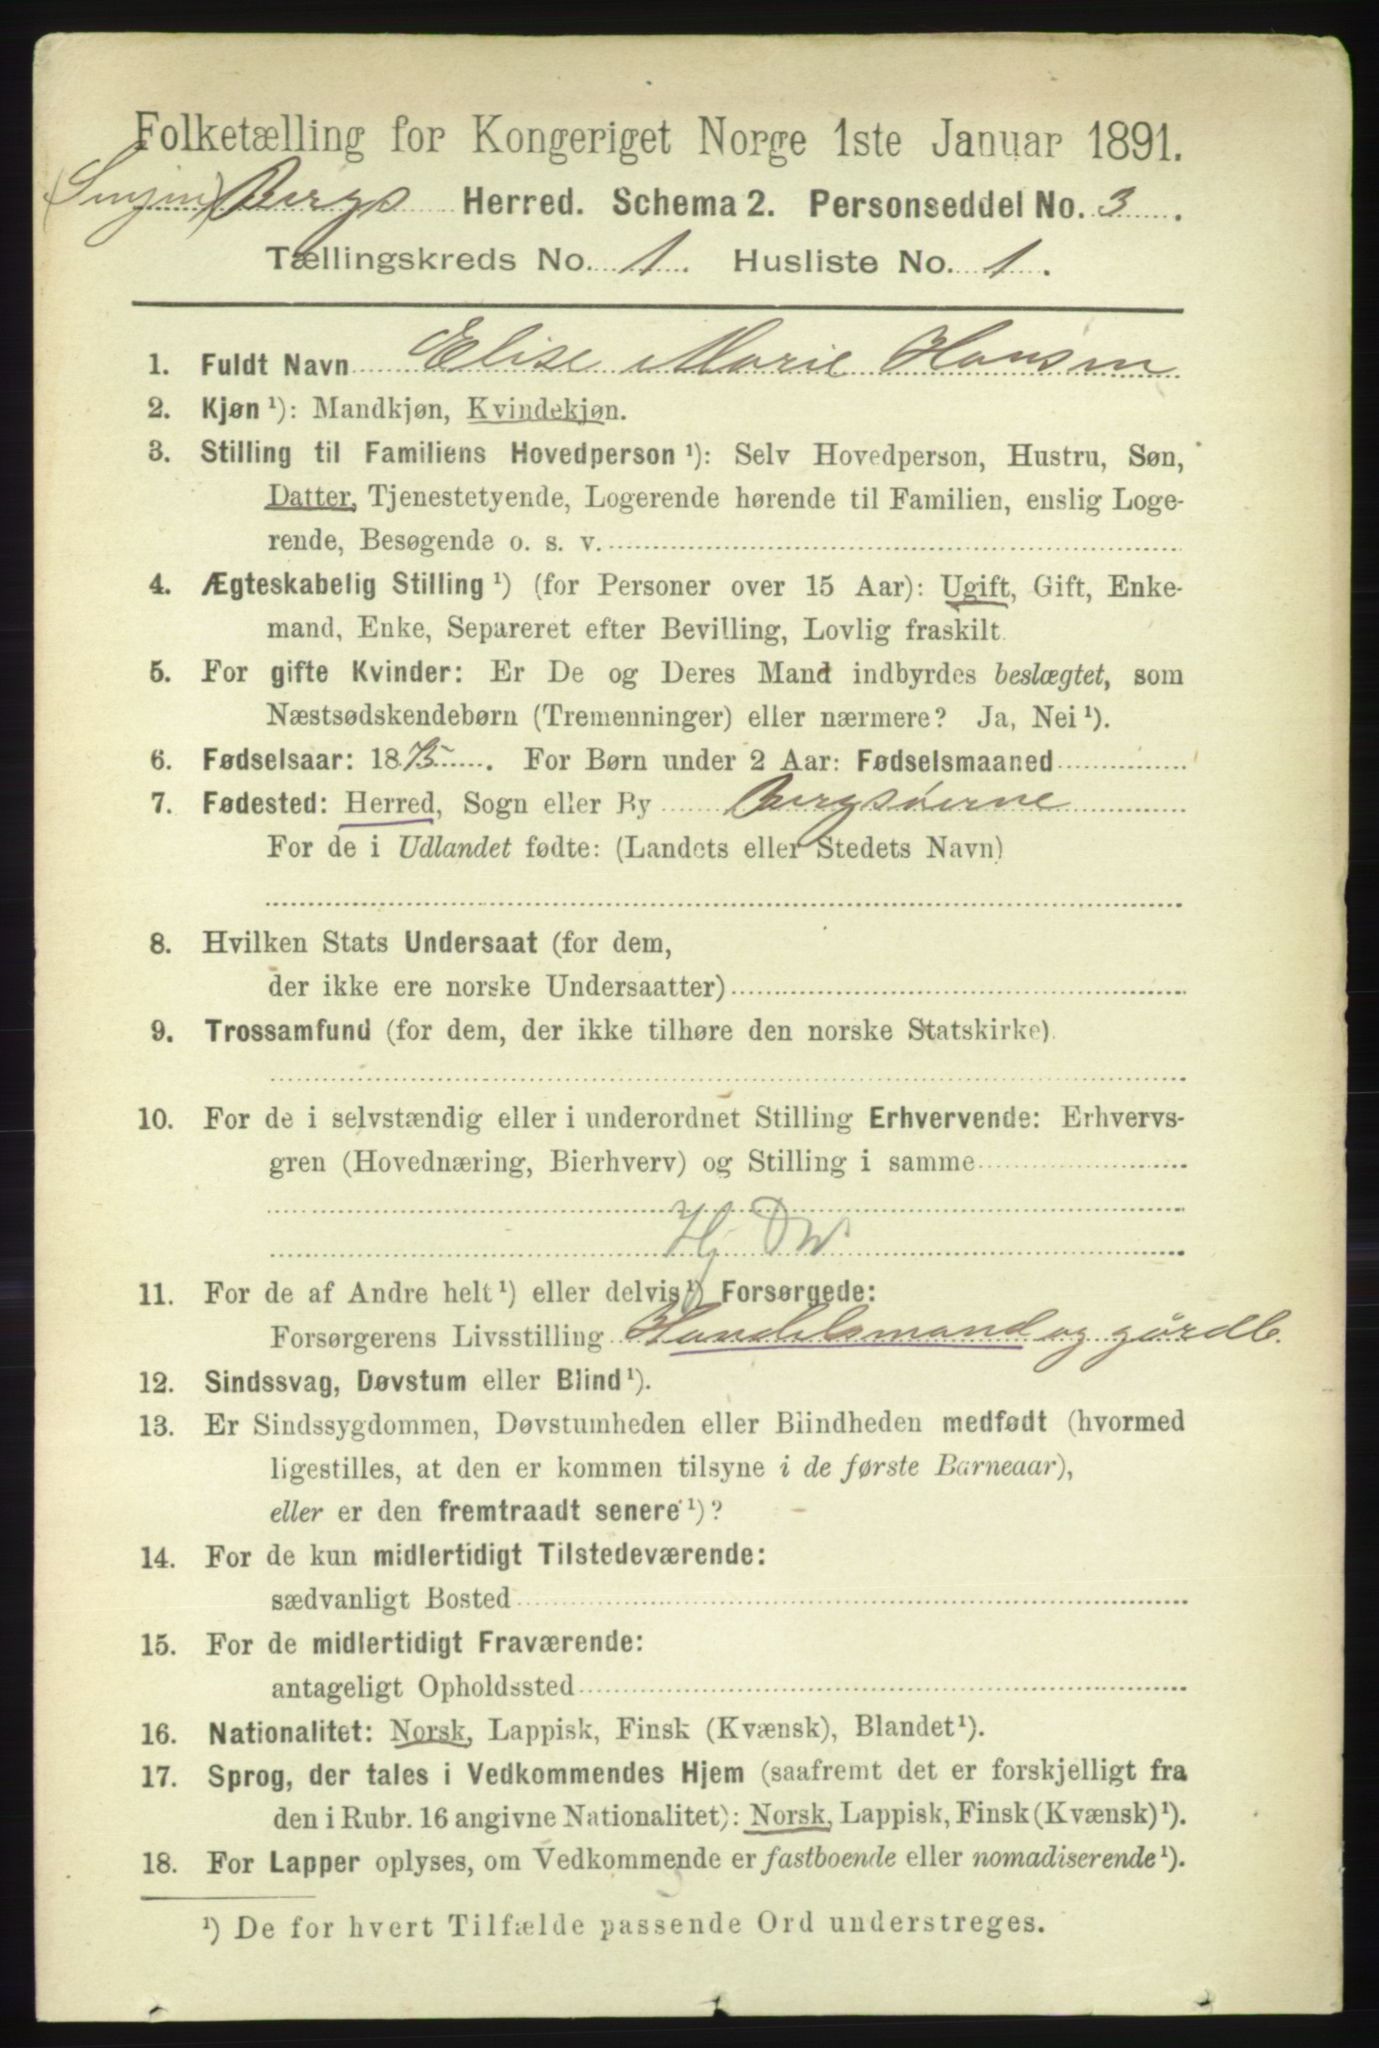 Folketælling for Kongeriget Norge 1ste Januar 1891.
(Senjen) Bergs Herred. Schema 2. Personseddel No. 3.
Tællingskreds No. 1. Husliste No. 1.
1. Fuldt Navn Elise Marie Hansen
2. Kjøn ¹): Mandkjøn, Kvindekjøn.
3. Stilling til Familiens Hovedperson ¹): Selv Hovedperson, Hustru, Søn,
Datter, Tjenestetyende, Logerende hørende til Familien, enslig Loge-
rende, Besøgende o. s. v.
4. Ægteskabelig Stilling ¹) (for Personer over 15 Aar): Ugift, Gift, Enke-
mand, Enke, Separeret efter Bevilling, Lovlig fraskilt.
5. For gifte Kvinder: Er De og Deres Mand indbyrdes beslægtet, som
Næstsødskendebørn (Tremenninger) eller nærmere? Ja, Nei ¹).
6. Fødselsaar: 1875. For Børn under 2 Aar: Fødselsmaaned
7. Fødested: Herred, Sogn eller By Bergsøerne
For de i Udlandet fødte: (Landets eller Stedets Navn)
8. Hvilken Stats Undersaat (for dem,
der ikke ere norske Undersaatter)
9. Trossamfund (for dem, der ikke tilhøre den norske Statskirke)
10. For de i selvstændig eller i underordnet Stilling Erhvervende: Erhvervs-
gren (Hovednæring, Bierhverv) og Stilling i samme
Hj DW
11. For de af Andre helt ¹) eller delvis ¹) Forsørgede:
Forsørgerens Livsstilling Handelsmand og gårdb.
12. Sindssvag, Døvstum eller Blind ¹).
13. Er Sindssygdommen, Døvstumheden eller Blindheden medfødt (hvormed
ligestilles, at den er kommen tilsyne i de første Barneaar),
eller er den fremtraadt senere ¹)?
14. For de kun midlertidigt Tilstedeværende:
sædvanligt Bosted
15. For de midlertidigt Fraværende:
antageligt Opholdssted
16. Nationalitet: Norsk, Lappisk, Finsk (Kvænsk), Blandet ¹).
17. Sprog, der tales i Vedkommendes Hjem (saafremt det er forskjelligt fra
den i Rubr. 16 angivne Nationalitet): Norsk, Lappisk, Finsk (Kvænsk) ¹).
18. For Lapper oplyses, om Vedkommende er fastboende eller nomadiserende ¹).
¹) De for hvert Tilfælde passende Ord understreges.